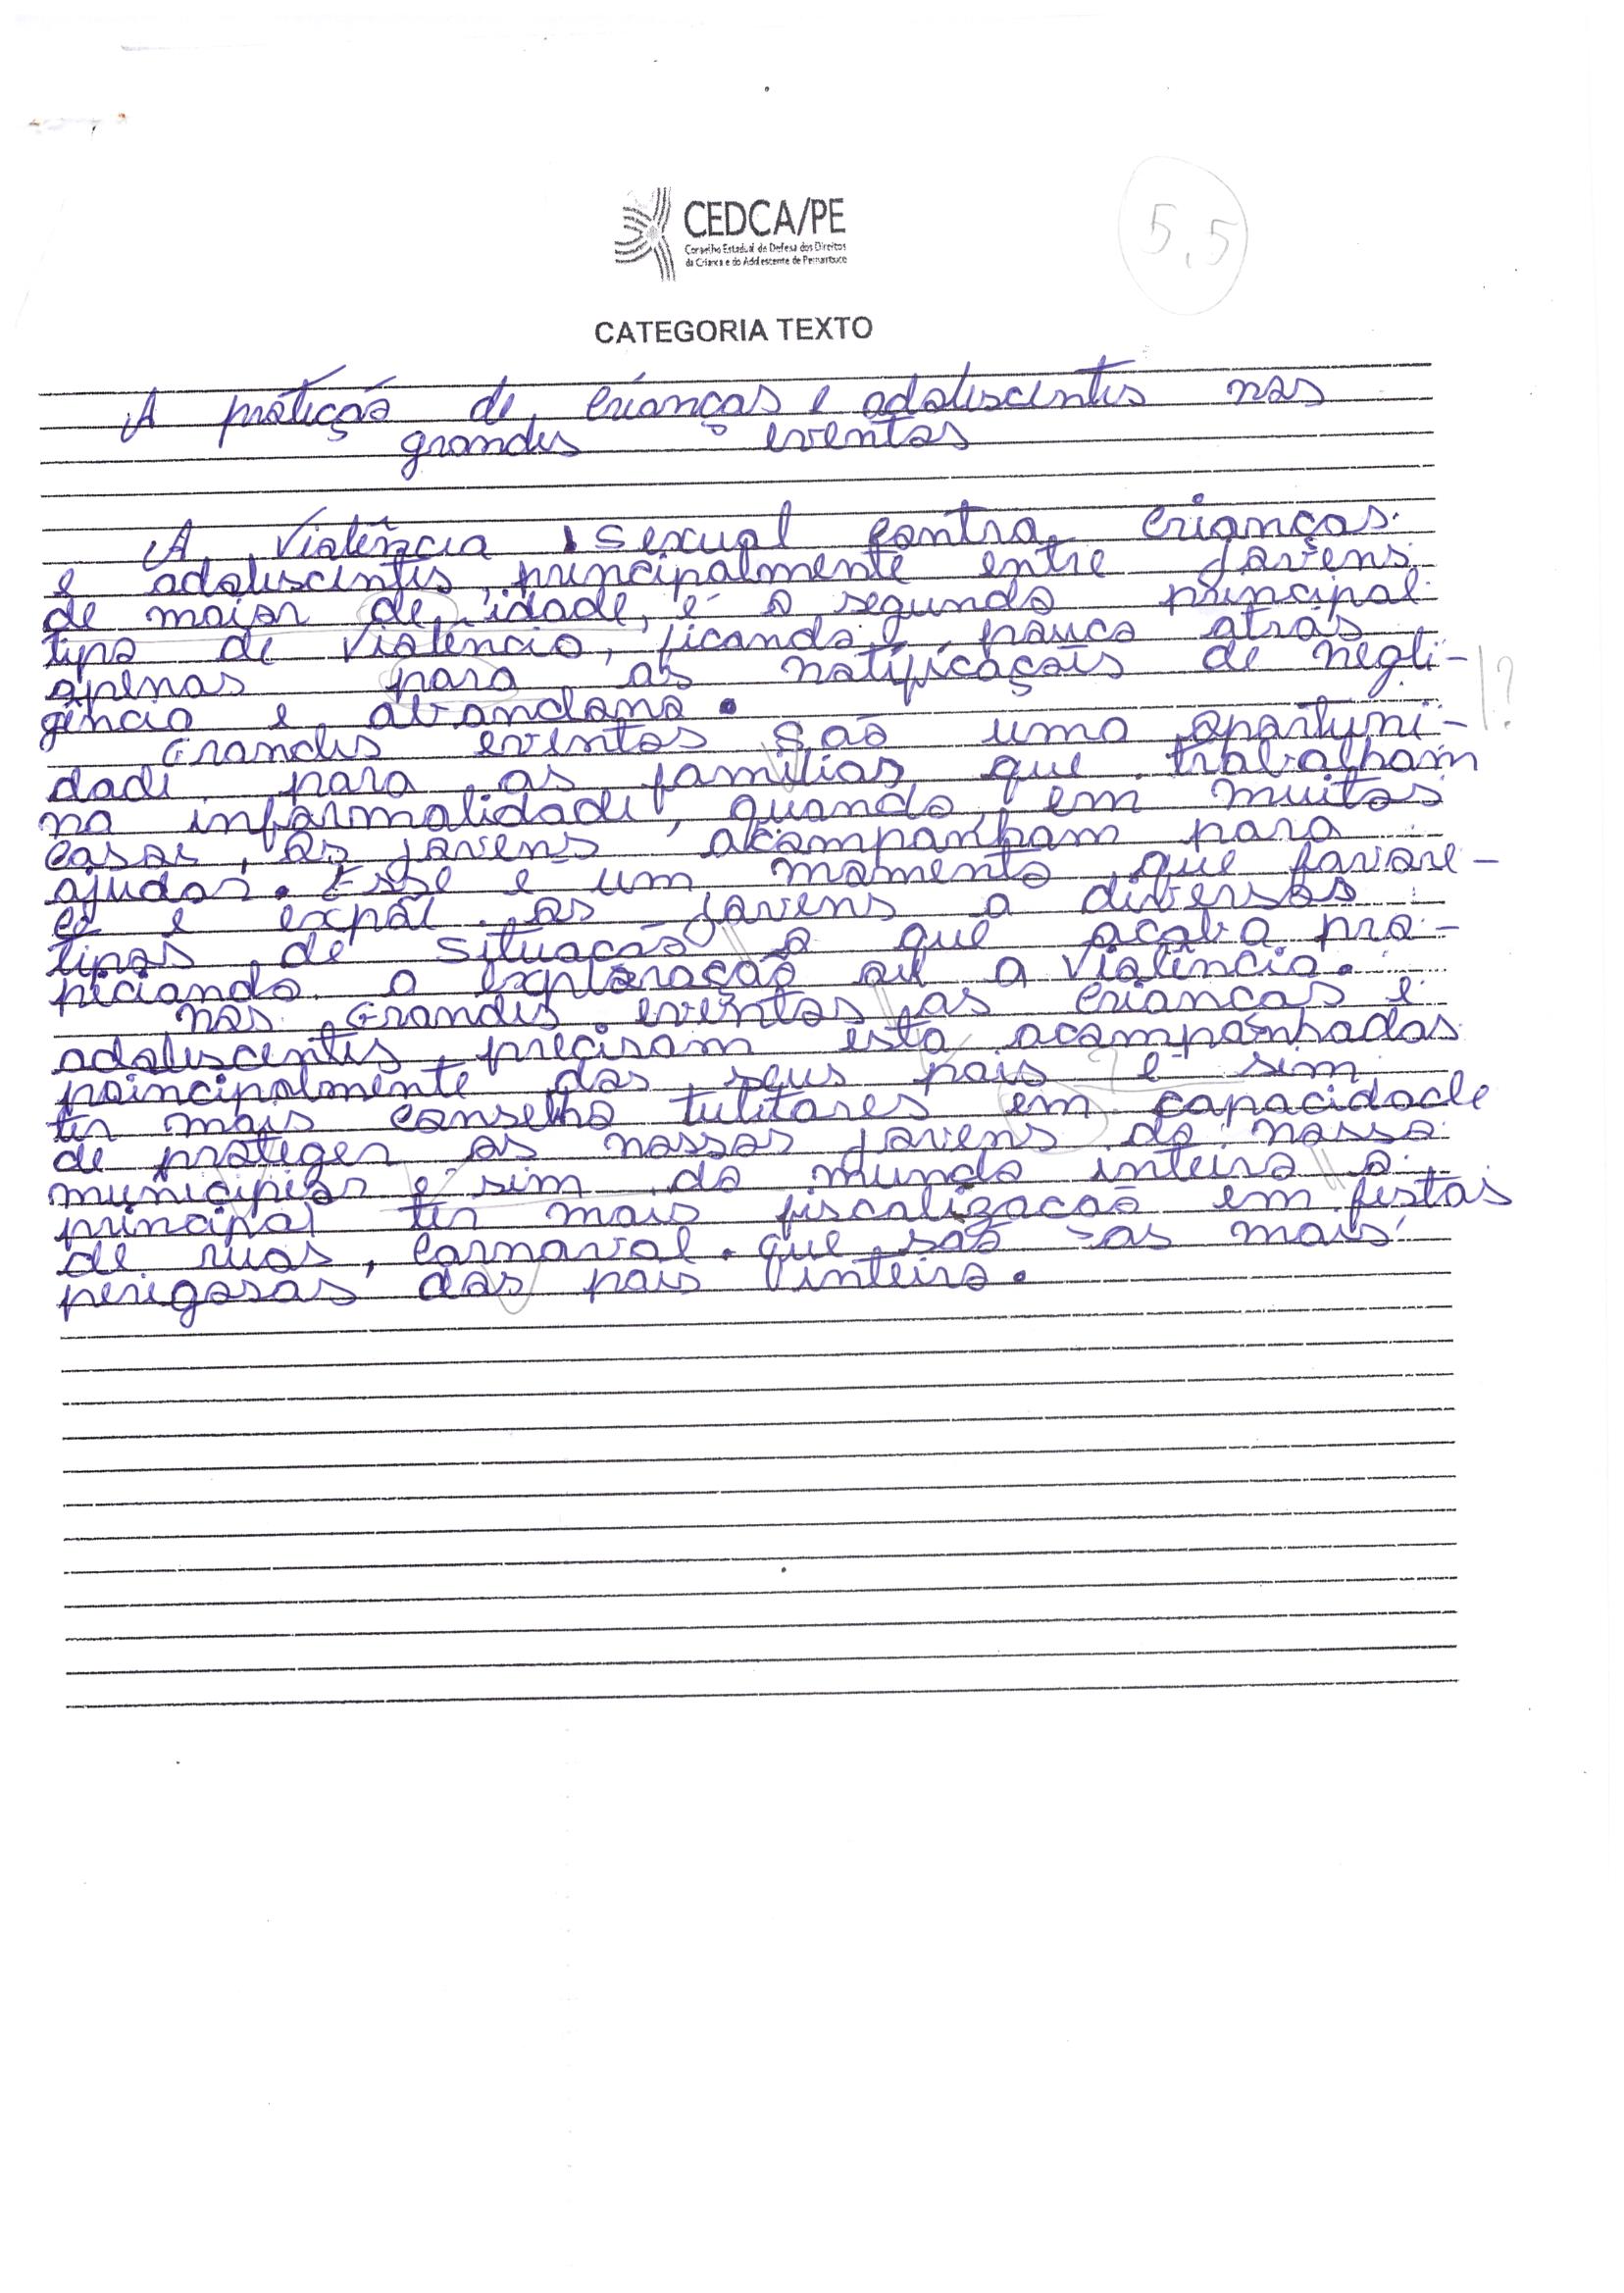 CEDCA/PE
Conselho Estadual de Defesa dos Direitos
da Criança e do Adolescente de Pernambuco
5,5
CATEGORIA TEXTO
A proteção de crianças e adolescentes nos
grandes eventos
A violência sexual contra crianças
e adolescentes, principalmente entre jovens
de maior de idade, é o segundo principal
tipo de violência, ficando pouco atrás
apenas para as notificações de negli-
gência e abandono.
Grandes eventos são uma oportuni-
dade para as famílias que trabalham
na informalidade, quando, em muitos
casos, os jovens acompanham para
ajudar. Esse e um momento que favore-
ce e expõe os jovens a diversos
tipos de situação o que acaba pro-
piciando a exploração ou a violência.
nos Grandes eventos as crianças e
adolescentes precisam esta acompanhadas
principalmente dos seus pais e sim
ter mais conselho tutitares em capacidade
de proteger os nossos jovens do nosso
municípios e sim do mundo inteiro o
principal ter mais fiscalizacão em festas
de ruas, carnaval. que são as mais
perigosas dos pais inteiro.
!?
?